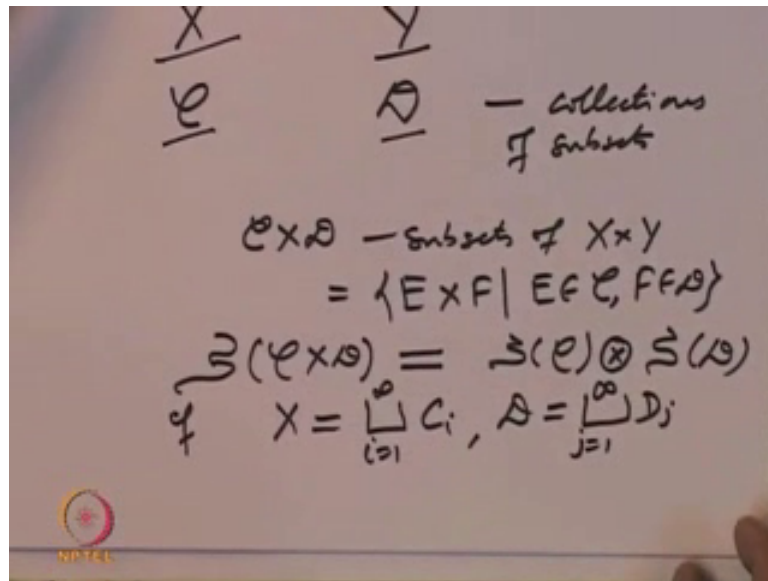 X Y
𝒞 𝒟 — collections
of subsets
𝒞×𝒟 — subsets of X×Y
= {E×F | E∈𝒞, F∈𝒟}
𝒮(𝒞×𝒟) = 𝒮(𝒞)⊗𝒮(𝒟)
if X = ⊔_{i=1}^{∞} C_i, 𝒟 = ⊔_{j=1}^{∞} D_j
NPTEL